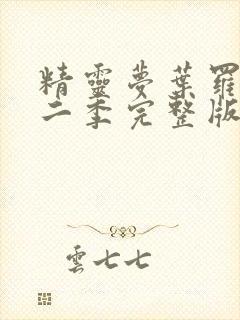 精靈夢葉羅
二季完整版
雲七七